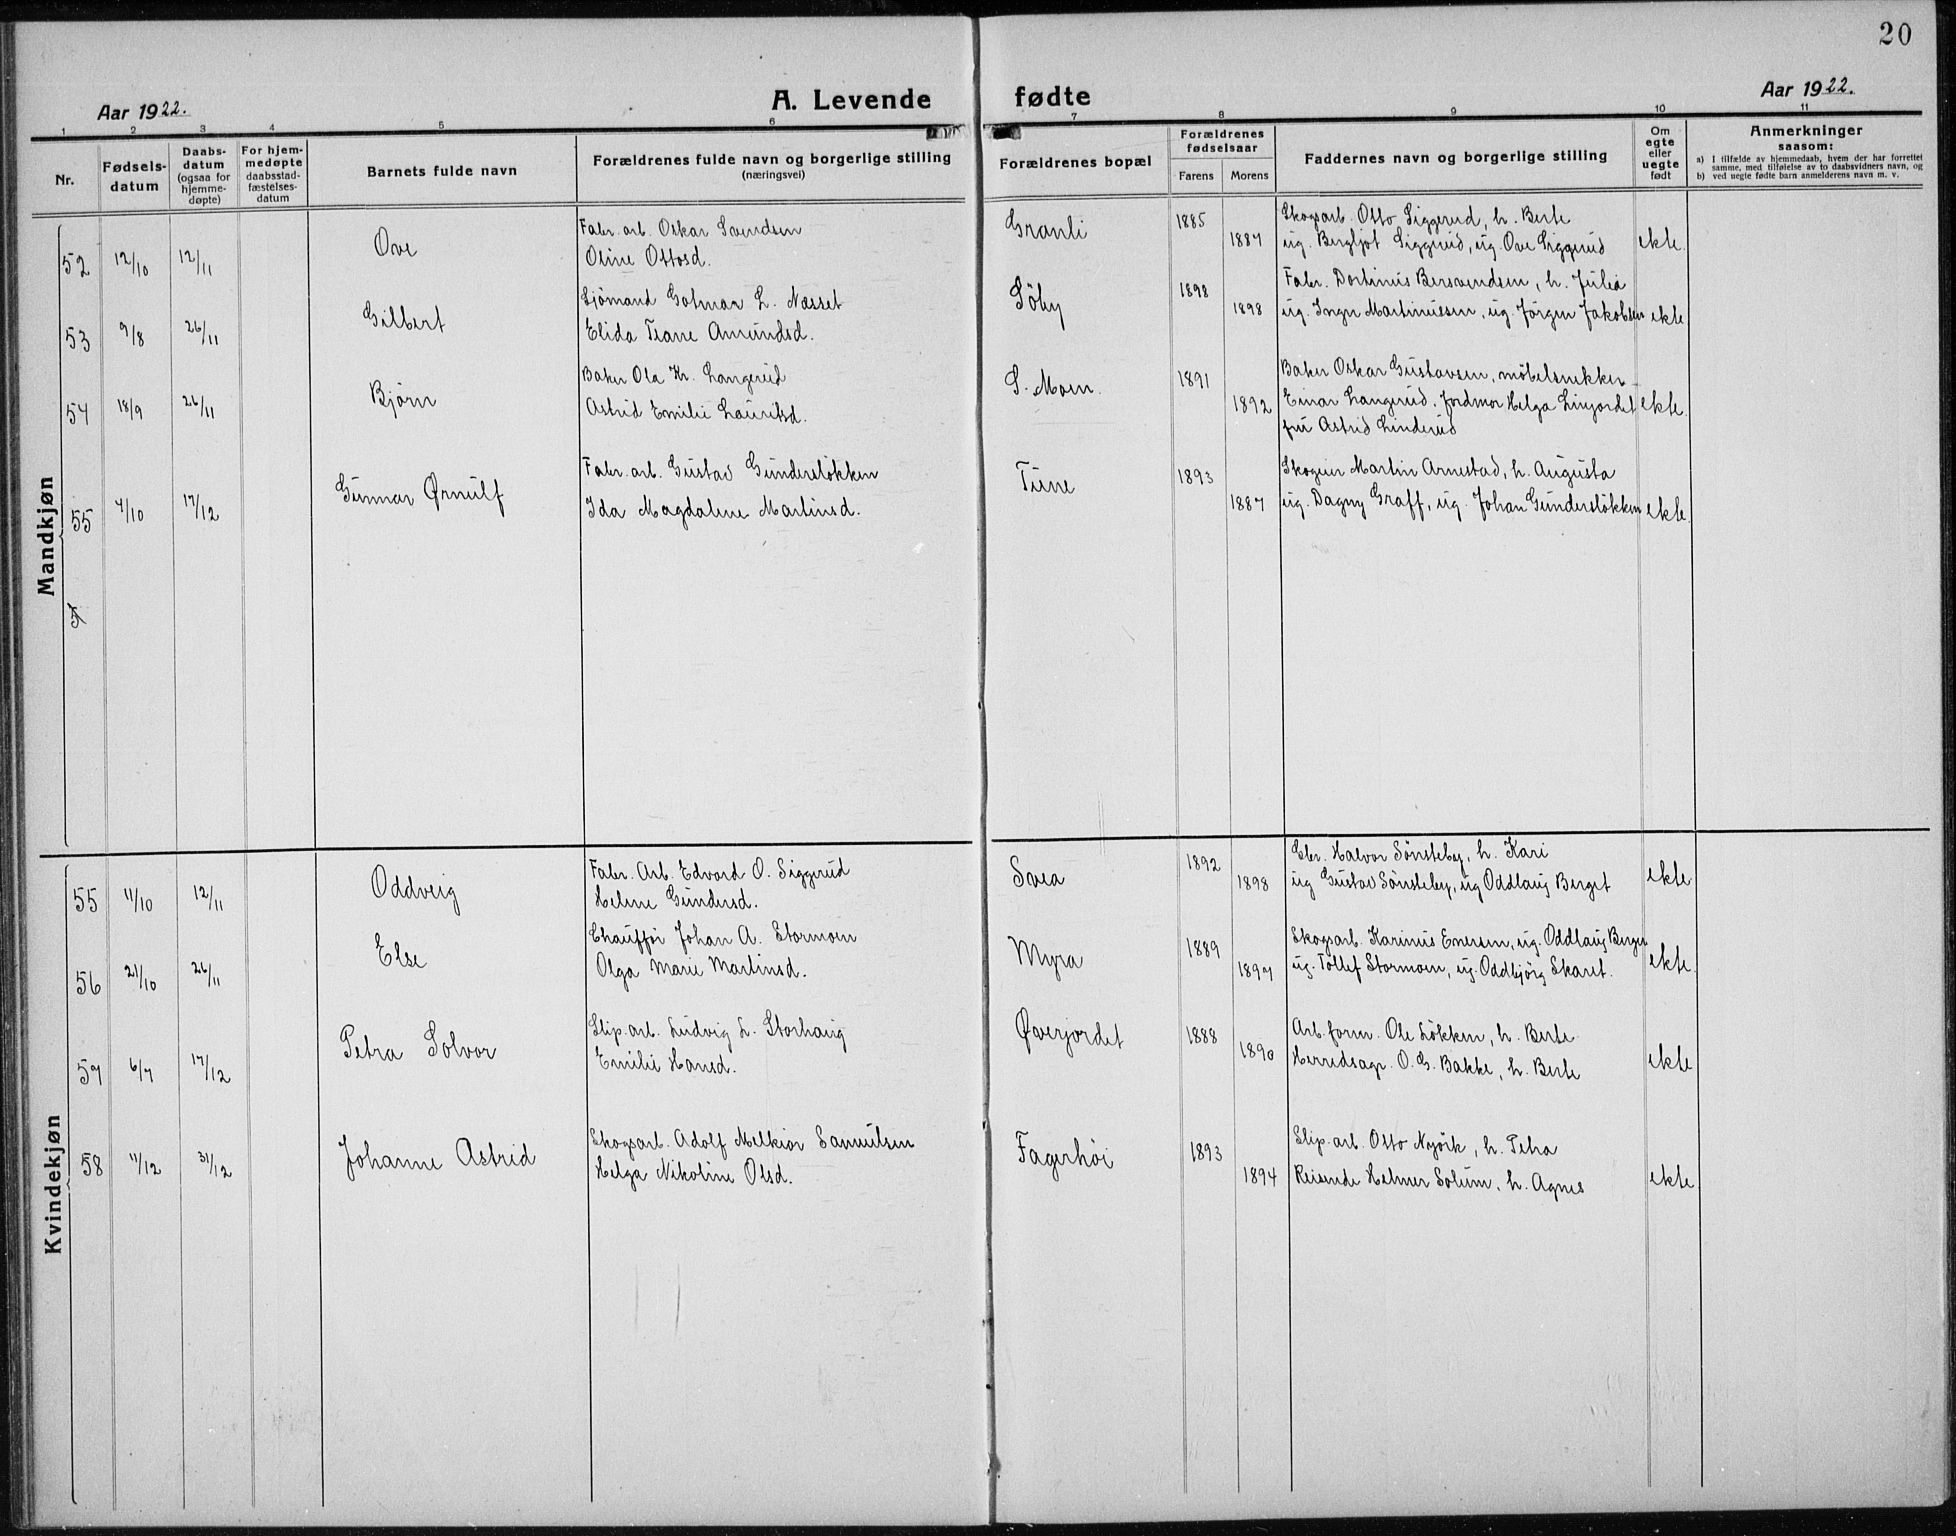 20
Aar 1922.
A. Levende fødte
Aar 1922.
1 2 3 4 5 6 7 8 9 10 11
Nr.
Fødsels-
datum
Daabs-
datum
(ogsaa for
hjemme-
døpte)
For hjem-
medøpte
daabsstad-
fæstelses-
datum
Barnets fulde navn
Forældrenes fulde navn og borgerlige stilling
(næringsvei)
Forældrenes bopæl
Forældrenes
fødselsaar
Farens Morens
Faddernes navn og borgerlige stilling
Om
egte
eller
uegte
født
Anmerkninger
saasom:
a) I tilfælde av hjemmedaab, hvem der har forrettet
samme, med tilføielse av to daabsvidners navn, og
b) ved uegte fødte barn anmelderens navn m. v.
Mandkjøn
52 12/10 12/11 Ove
Fabr. arb. Oskar Svendsen
Oline Ottosd.
Granli 1885 1887
Skogsarb. Otto Siggerud, h. Berte
ug. Bergljot Siggerud, ug. Ove Siggerud
ekte.
53 9/8 26/11 Gilbert
Sjömand Gotmar L. Næsset
Elida Tiane Amundsd.
Söby 1898 1898
Fabr. Dortinus Bersvendsen, h. Julia
ug. Inga Martinuesen, ug. Jörgen Jakobsen
ekte
54 18/9 26/11 Bjørn
Baker Ola Kr. Langerud
Astrid Emilie Lauritsd.
S. Moen. 1891 1892
Baker Oskar Gustavsen, möbelsnekker
Einar Langerud, Jordmor Helga Linjordet
fru Astrid Linderud
ekte.
55 4/10 17/12 Gunnar Ørnulf
Fabr. arb. Gustav Gunderslökken
Ida Magdalene Martinsd.
Tune 1893 1887
Skogeier Martin Arnestad, h. Augusta
ug. Dagny Graff, ug. Johan Gunderslökken
ekte.
5
Kvindekjøn
55 11/10 12/11 Oddveig
Fabr. Arb. Edvard O. Siggerud
Helene Gundersd.
Svea 1892 1898
Gbr. Halvor Sönsteby, h. Kari
ug Gustav Sönsteby, ug Oddlaug Berget
ekte
56 21/10 26/11 Else
Chauffør Johan A. Stormoen
Olga Marie Martinsd.
Myra 1889 1897
Skogsarb. Karinus Enersen, ug. Oddlaug Berget
ug. Tollef Stormoen, ug. Oddbjörg Skaret.
ekte.
57 6/7 17/12 Petra Solvor
Slip. arb. Ludvig L. Storhaug
Emilie Hansd.
Øverjordet 1888 1890
Arb. form. Ole Lökken, h. Berte
Herredsagr. O. G. Bakke, h. Berte
ekte
58 11/12 31/12 Johanne Astrid
Skogsarb. Adolf Melkior Samuelsen
Helga Nikoline Olsd.
Fagerhöi 1893 1894
Slip. arb. Otto Nyörk, h. Petra
Reisende Helmer Solum, h. Agnes
ekte.